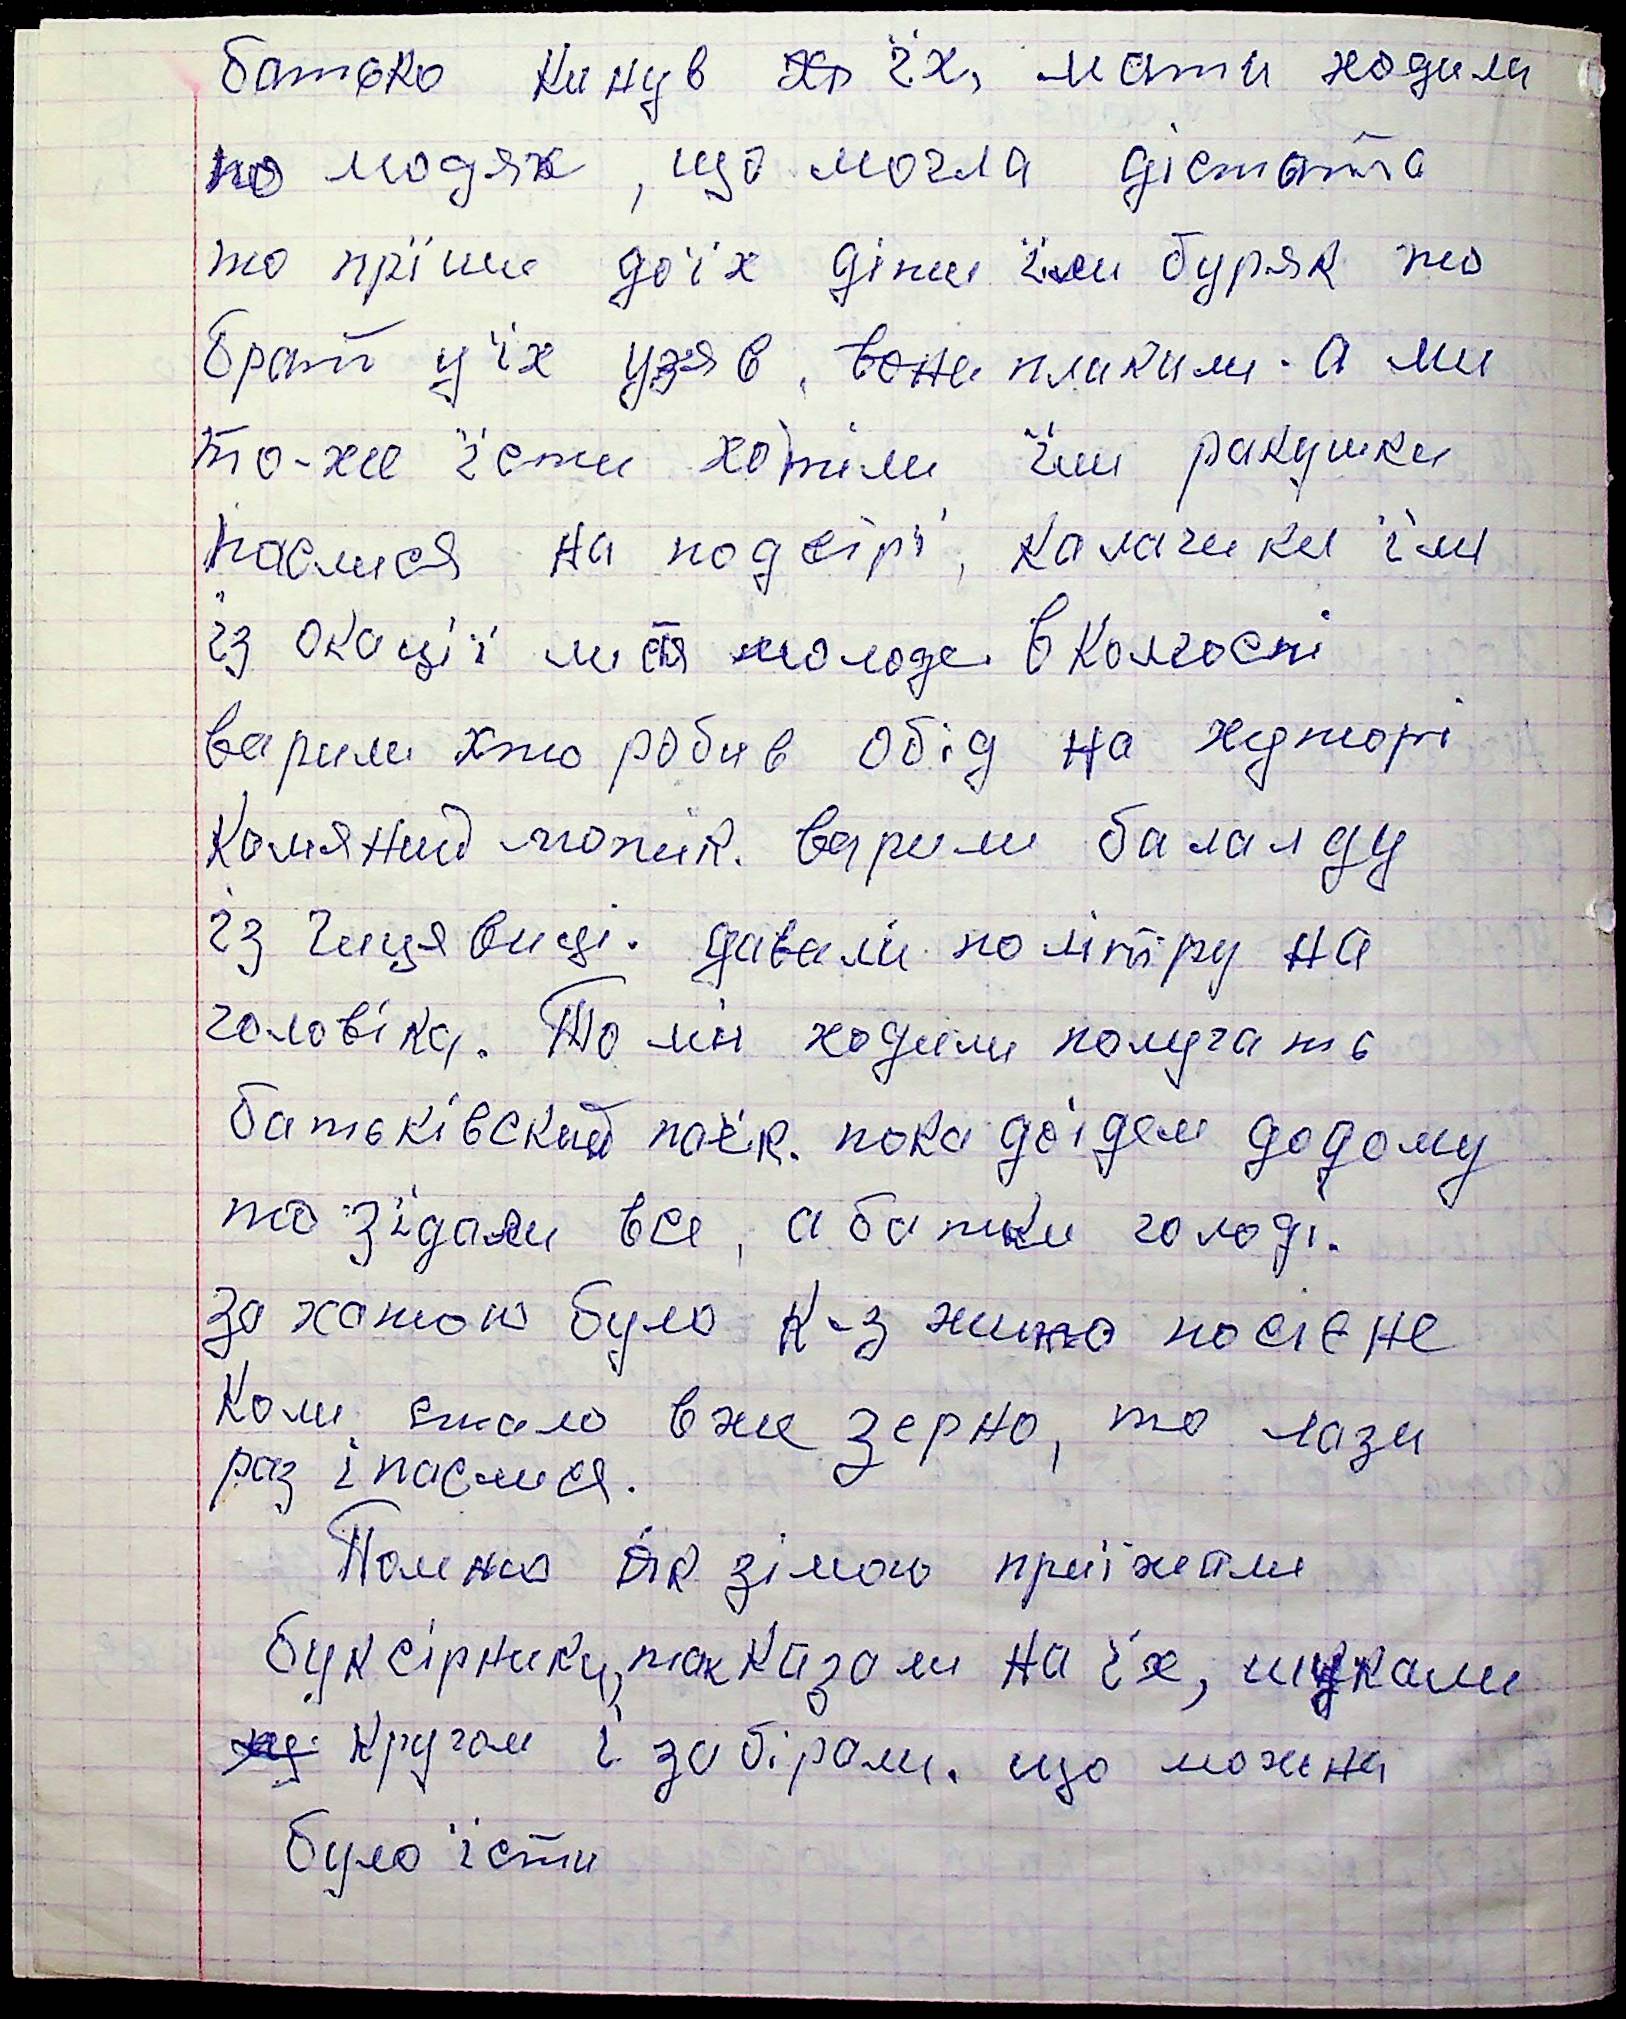 батько кинув їх, мати ходили
по людях, що могла дістать
то прійшли до їх діти їли буряк то
брат у їх узяв, воне плакали. а ми
то-же їсти хотіли їли ракушки
паслися на подвірї, калачики їли
із окації листя молоде. в колгоспі
варили хто робив обід на хуторі
варили баланду
давали по літру на
чоловіка. То ми ходили получать
батьківский паёк. пока доїдем додому
то зїдали все, а батьки голоді.
за хатою було к-з жито посієне
Коли стало вже зерно, то лази
раз і паслися.
Помню як зімою приїжжали
буксірники, так казали на їх, шукали
кругом і забірали. що можна
було їсти